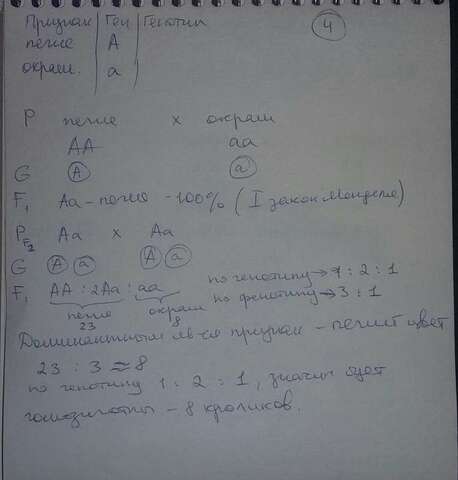 Признак | Ген | Генотип
4
пегие | A
окраш. | a
P пегие x окраш
AA aa
G A a
F₁ Aa - пегие - 100% (I закон Менделя)
P_F₂ Aa x Aa
G A a A a
F₁ AA : 2Aa : aa по генотипу → 1 : 2 : 1
пегие окраш по фенотипу → 3 : 1
23 8
Доминантным яв-ся признак - пегий цвет
23 : 3 ≈ 8
по генотипу 1 : 2 : 1, значит будет
гомозиготны - 8 кроликов.